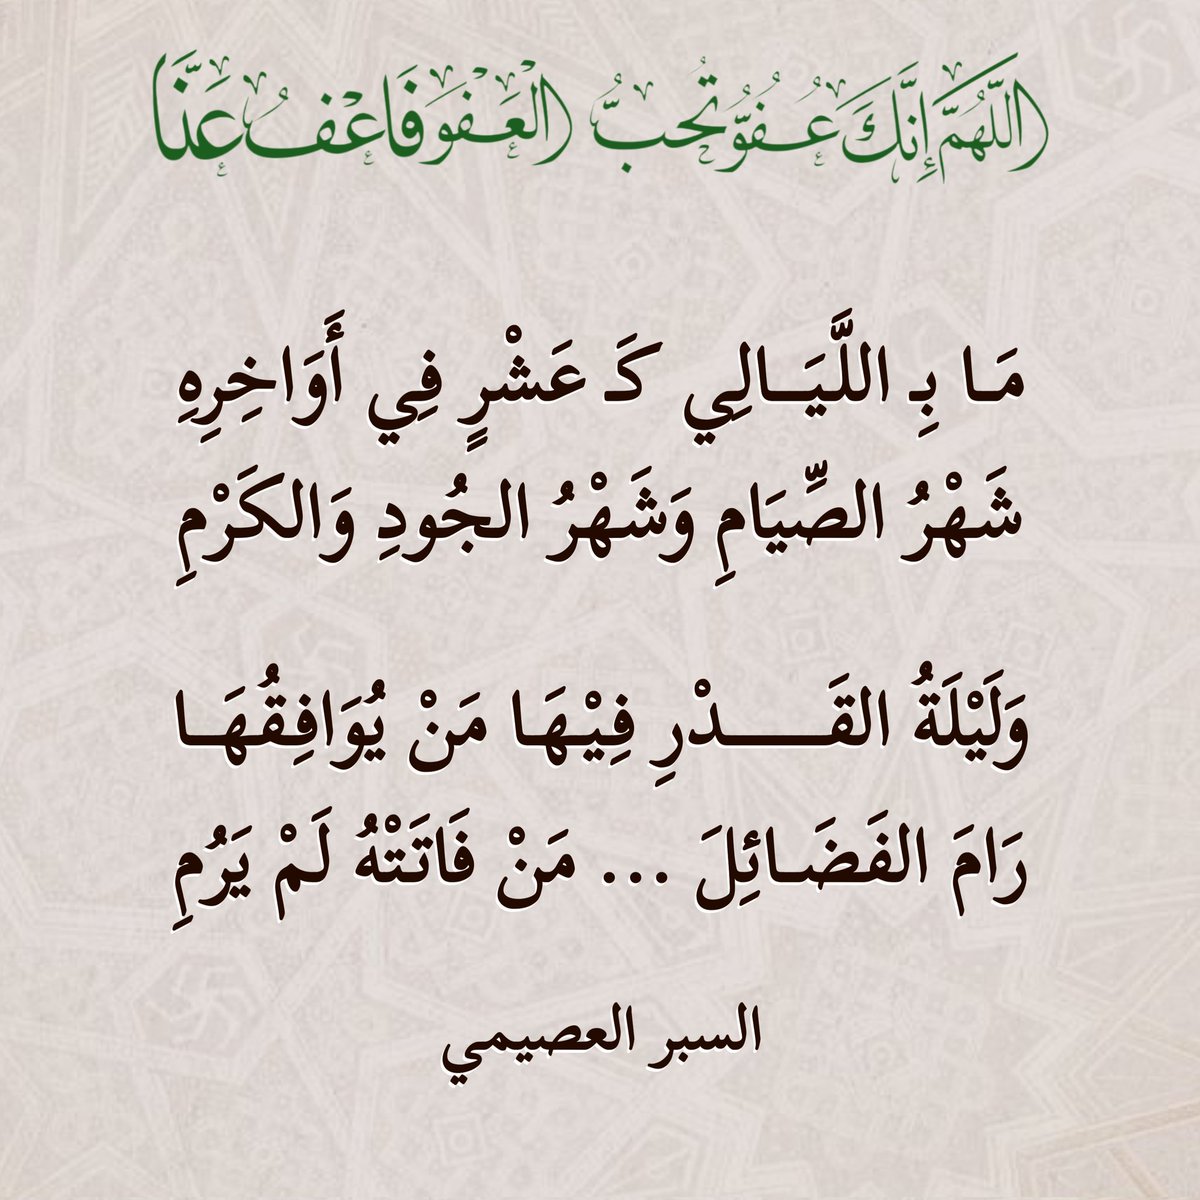 اللَّهُمَّ إِنَّكَ عُفُوٌّ تُحِبُّ الْعَفْوَ فَاعْفُ عَنَّا
مَـا بِـ اللَّيَـالِي كَـ عَشْرٍ فِي أَوَاخِرِهِ
شَهْرُ الصِّيَامِ وَشَهْرُ الجُودِ وَالكَرْمِ
وَلَيْلَةُ القَـــــدْرِ فِيْهَا مَنْ يُوَافِقُهَـا
رَامَ الفَضَـائِلَ ... مَنْ فَاتَتْهُ لَمْ يَرُمِ
السبر العصيمي